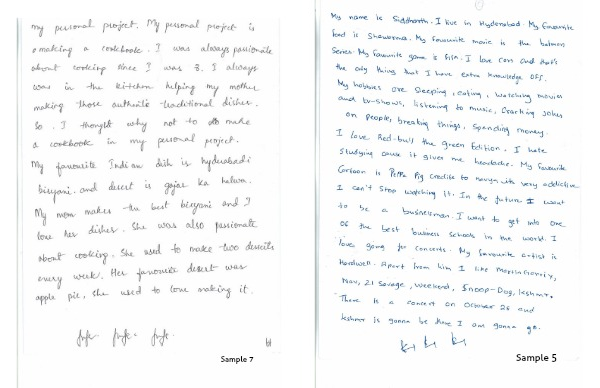 my personal project. My personal project is
making a cookbook. I was always pasionate
about cooking since I was 3. I always
was in the kitchen helping my mother
making those authentic traditional dishes.
So, I thought why not to make
a cookbook in my personal project.
My favourite Indian dish is hyderabadi
biryani. and desert is gajar ka halwa.
My mom makes the best biryani and I
love her dishes. She was also passionate
about cooking. She used to make two deserts
every week. Her favourite desert was
apple pie, she used to love making it.
Sample 7
My name is Siddharth. I live in Hyderabad. My favourite
food is Shawarma. My favourite movie is the batman
Series. My favourite game is fifa. I love cars and that's
the only thing that I have extra knowledge off.
My hobbies are Sleeping, eating, watching movies
and tv-shows, listening to music, Cracking jokes
on people, breaking things, Spending money.
I love Red-bull the green Edition. I hate
Studying cause it gives me headache. My favourite
Cartoon is PePPa Pig credits to its very addictive
I can't Stop watching it. In the future I want
to be a businessman. I want to get into one
of the best business schools in the world. I
love going for concerts. My favourite artist is
Hardwell. Apart from him I like Martin Garrix,
Nav, 21 Savage, weekend, Snoop-Dog, kshmr.
There is a concert on October 26 and
kshmr is gonna be there I am gonna go.
Sample 5